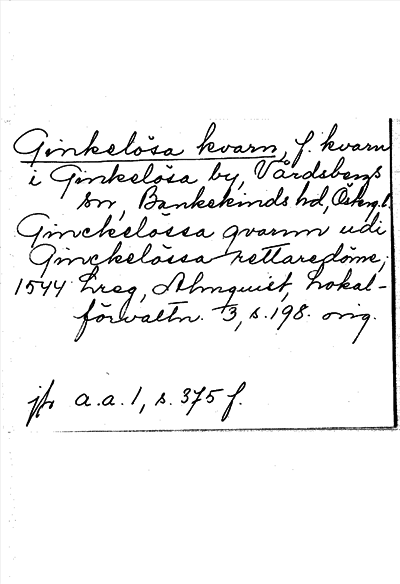 Ginkelösa kvarn, f. kvarn
i Ginkelösa by, Vårdsbergs
sn, Bankekinds hd, Östergl.
Ginckelössa qvarnn udi
Ginckelössa rettaredöme,
1544 Lreg, Almquist, Lokal-
förvaltn. 3, s. 198. orig.
jfr a.a. 1, s. 375 f.